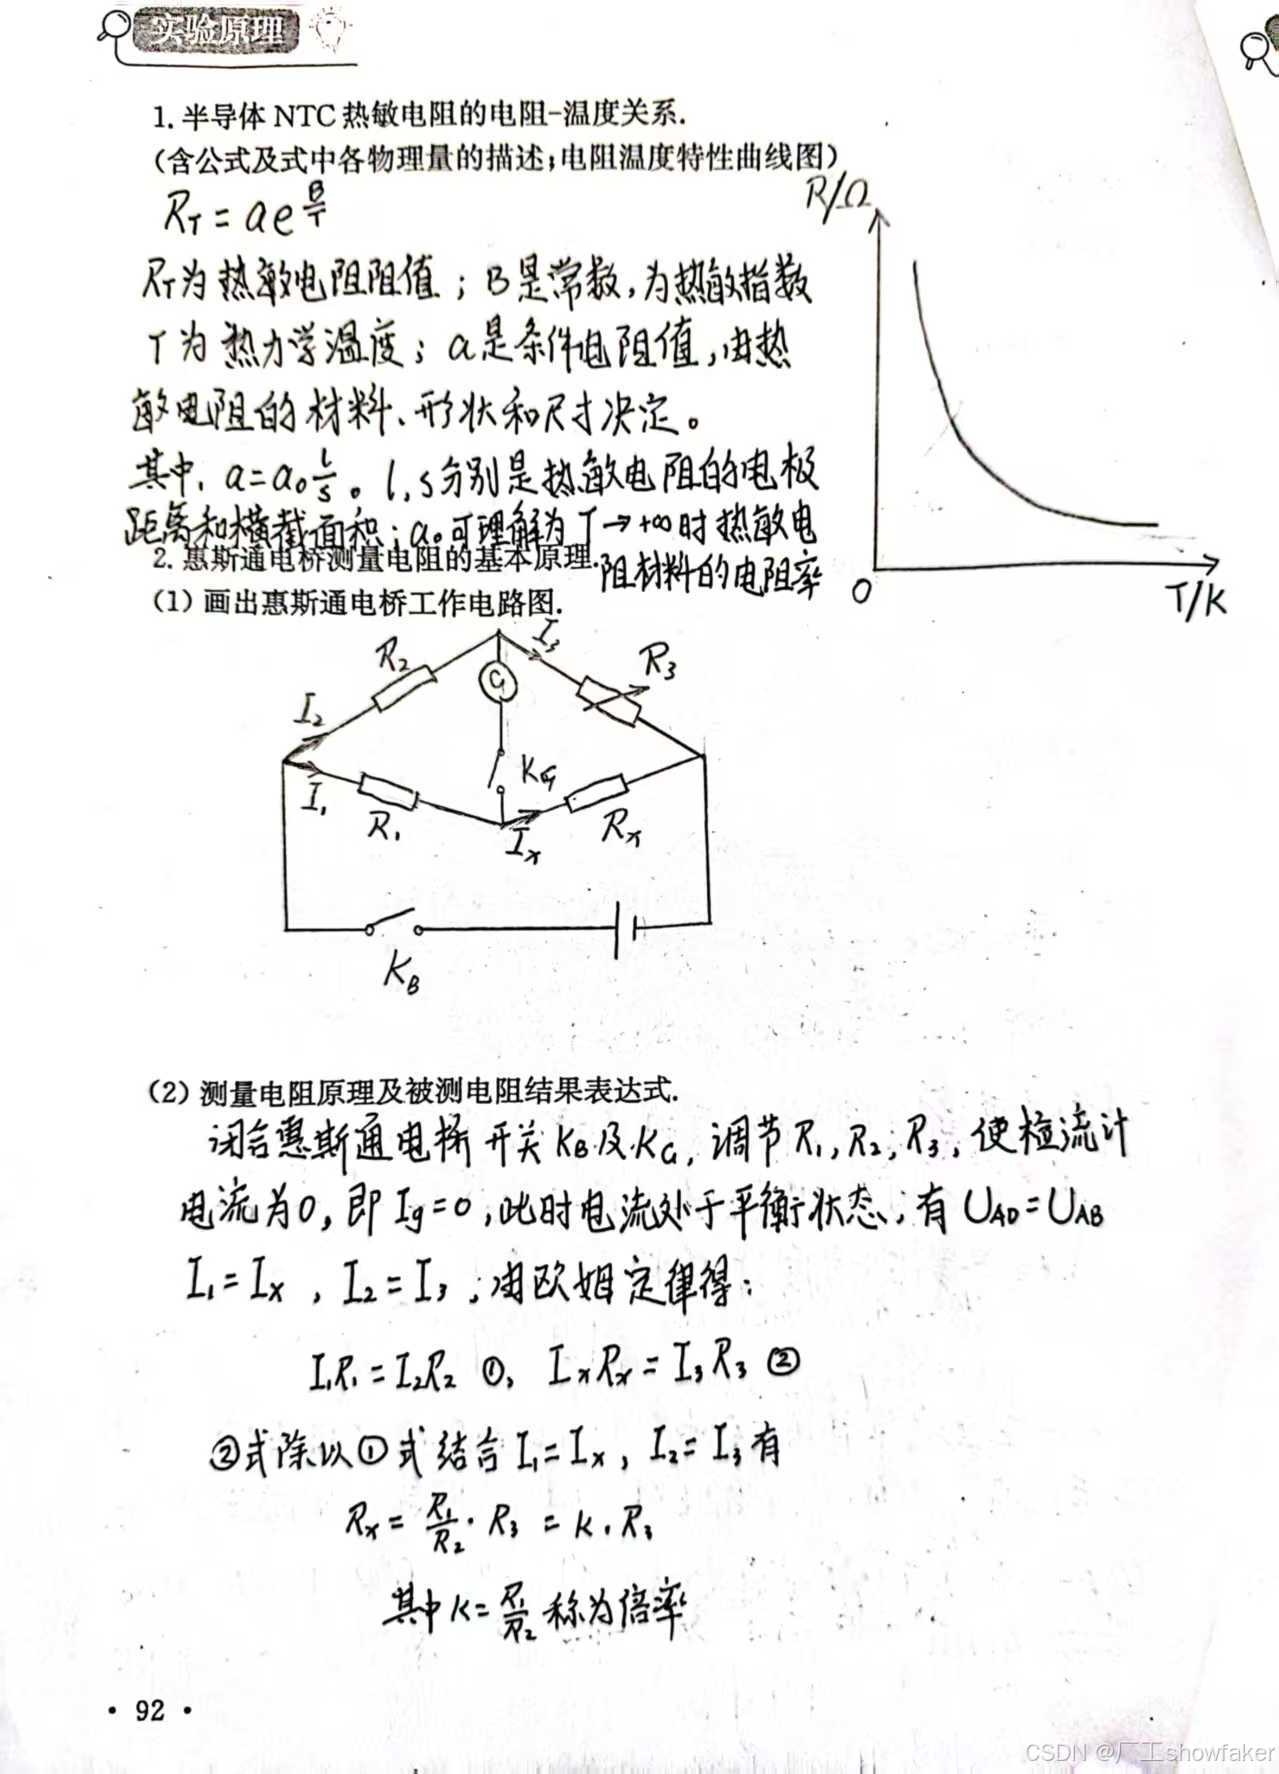 实验原理
1. 半导体 NTC 热敏电阻的电阻-温度关系.
(含公式及式中各物理量的描述;电阻温度特性曲线图)
R/Ω
R_T = ae^{B/T}
R_T为热敏电阻阻值；B是常数,为热敏指数
T为热力学温度；a是条件电阻值,由热
敏电阻的材料、形状和尺寸决定。
其中, a=a₀ l/s 。l,s分别是热敏电阻的电极
距离和横截面积；a₀可理解为T→+∞时热敏电
阻材料的电阻率
O
T/K
2. 惠斯通电桥测量电阻的基本原理.
(1) 画出惠斯通电桥工作电路图.
I₃
R₂
R₃
G
I₂
K_G
I₁
R₁
I_x
R_x
K_B
(2) 测量电阻原理及被测电阻结果表达式.
闭合惠斯通电桥开关K_B及K_G, 调节R₁,R₂,R₃, 使检流计
电流为0, 即 Ig=0, 此时电流处于平衡状态, 有 U_AD=U_AB
I₁=I_x , I₂=I₃ ,由欧姆定律得:
I₁R₁=I₂R₂ ①, I_xR_x=I₃R₃ ②
②式除以①式结合I₁=I_x, I₂=I₃有
R_x = R₁/R₂ · R₃ = K · R₃
其中K=R₁/R₂ 称为倍率
· 92 ·
CSDN @厂工showfaker